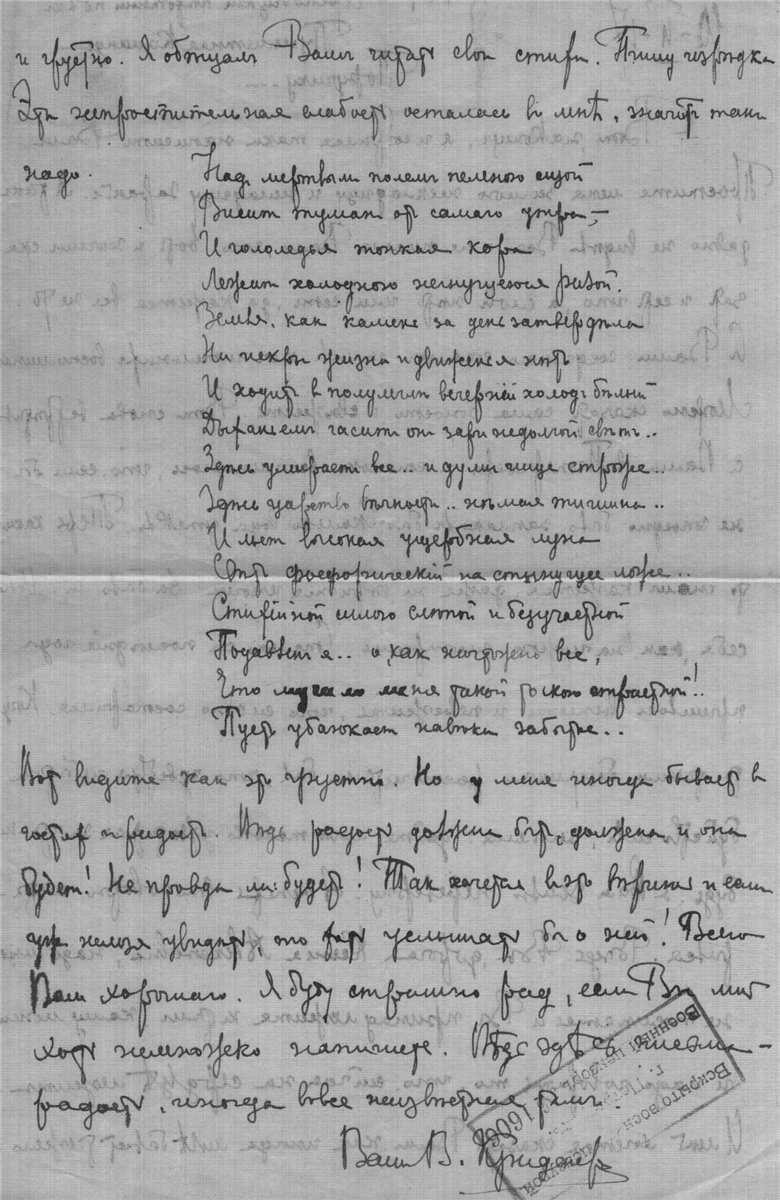 и грустно. Я обѣщалъ Вамъ читать свои стихи. Пишу изрѣдка
Эта непростительная слабость осталась во мнѣ, значитъ такъ
надо.
Надъ мертвымъ полемъ пеленою сизой
Виситъ туманъ отъ самаго утра,–
И гололедья тонкая кора
Лежитъ холодною негнущеюся ризой.
Земля, какъ камень за день затвердѣла
Ни искры жизни и движенья нѣтъ
И ходитъ в полумглѣ вечерній холодъ бѣлый
Дыханьемъ гаситъ он зари недолгой свѣтъ..
Здѣсь умираетъ все.. и думы чище строже..
Здѣсь царство вѣчности.. нѣмая тишина..
И льетъ высокая ущербная луна
Свѣтъ фосфорическій на стынущее ложе..
Стихійной силою слѣпой и безучастной
Подавленъ я.. о, как ничтожно все,
Что мучило меня такой тоскою страстной!..
Пусть убаюкаетъ навѣки забытье..
Вотъ видите как это грустно. Но у меня иногда бываетъ в
гостях и радость. Вѣдь радость должна быть, должна и она
будетъ! Не правда ли: будетъ! Такъ хочется в это вѣрить и если
уж нельзя увидѣть, то хоть услышать бы о ней! Всего
Вам хорошаго. Я буду страшно радъ, если Вы мнѣ
хоть немножко напишете. Вѣдь здѣсь письма –
радость, иногда вовсе неизвѣстная тамъ.
Вашъ В.
Вскрыто воен
Военный
1605